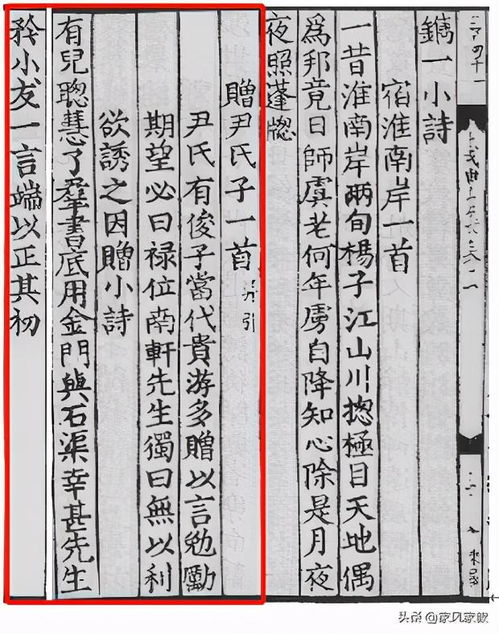 鐫一小詩
宿淮南岸一首
一昔淮南岸兩旬楊子江山川揔極目天地偶
爲邦竟日師虞老何年虜自降知心除是月夜
夜照蓬牕
贈尹氏子一首 并引
尹氏有俊子當代貴游多贈以言勉勵
期望必曰禄位南軒先生獨曰無以利
欲誘之因贈小詩
有兒聰慧了羣書底用金門與石渠幸甚先生
矜小友一言端以正其初
头条 @家风家教